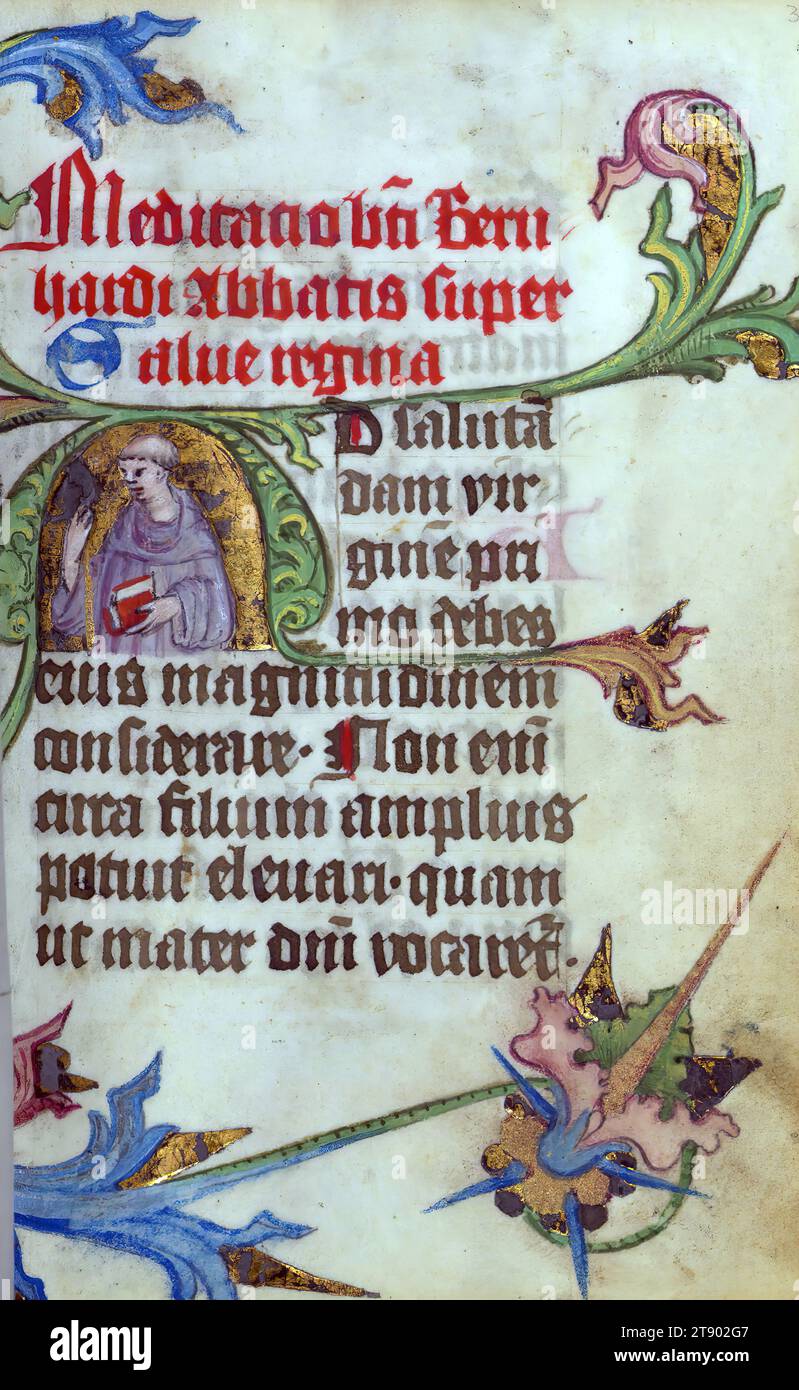 3
Meditacio bt̄i Bern
hardi Abbatis super
Salue regina
AD salutā
dam vir
ginē pri
mo debes
eius magnitudinem
considerare. Non enī
circa filium amplius
potuit eleuari. quam
ut mater dn̄i vocaret̄.
alamy
alamy
Image ID: 2T902G7
www.alamy.com